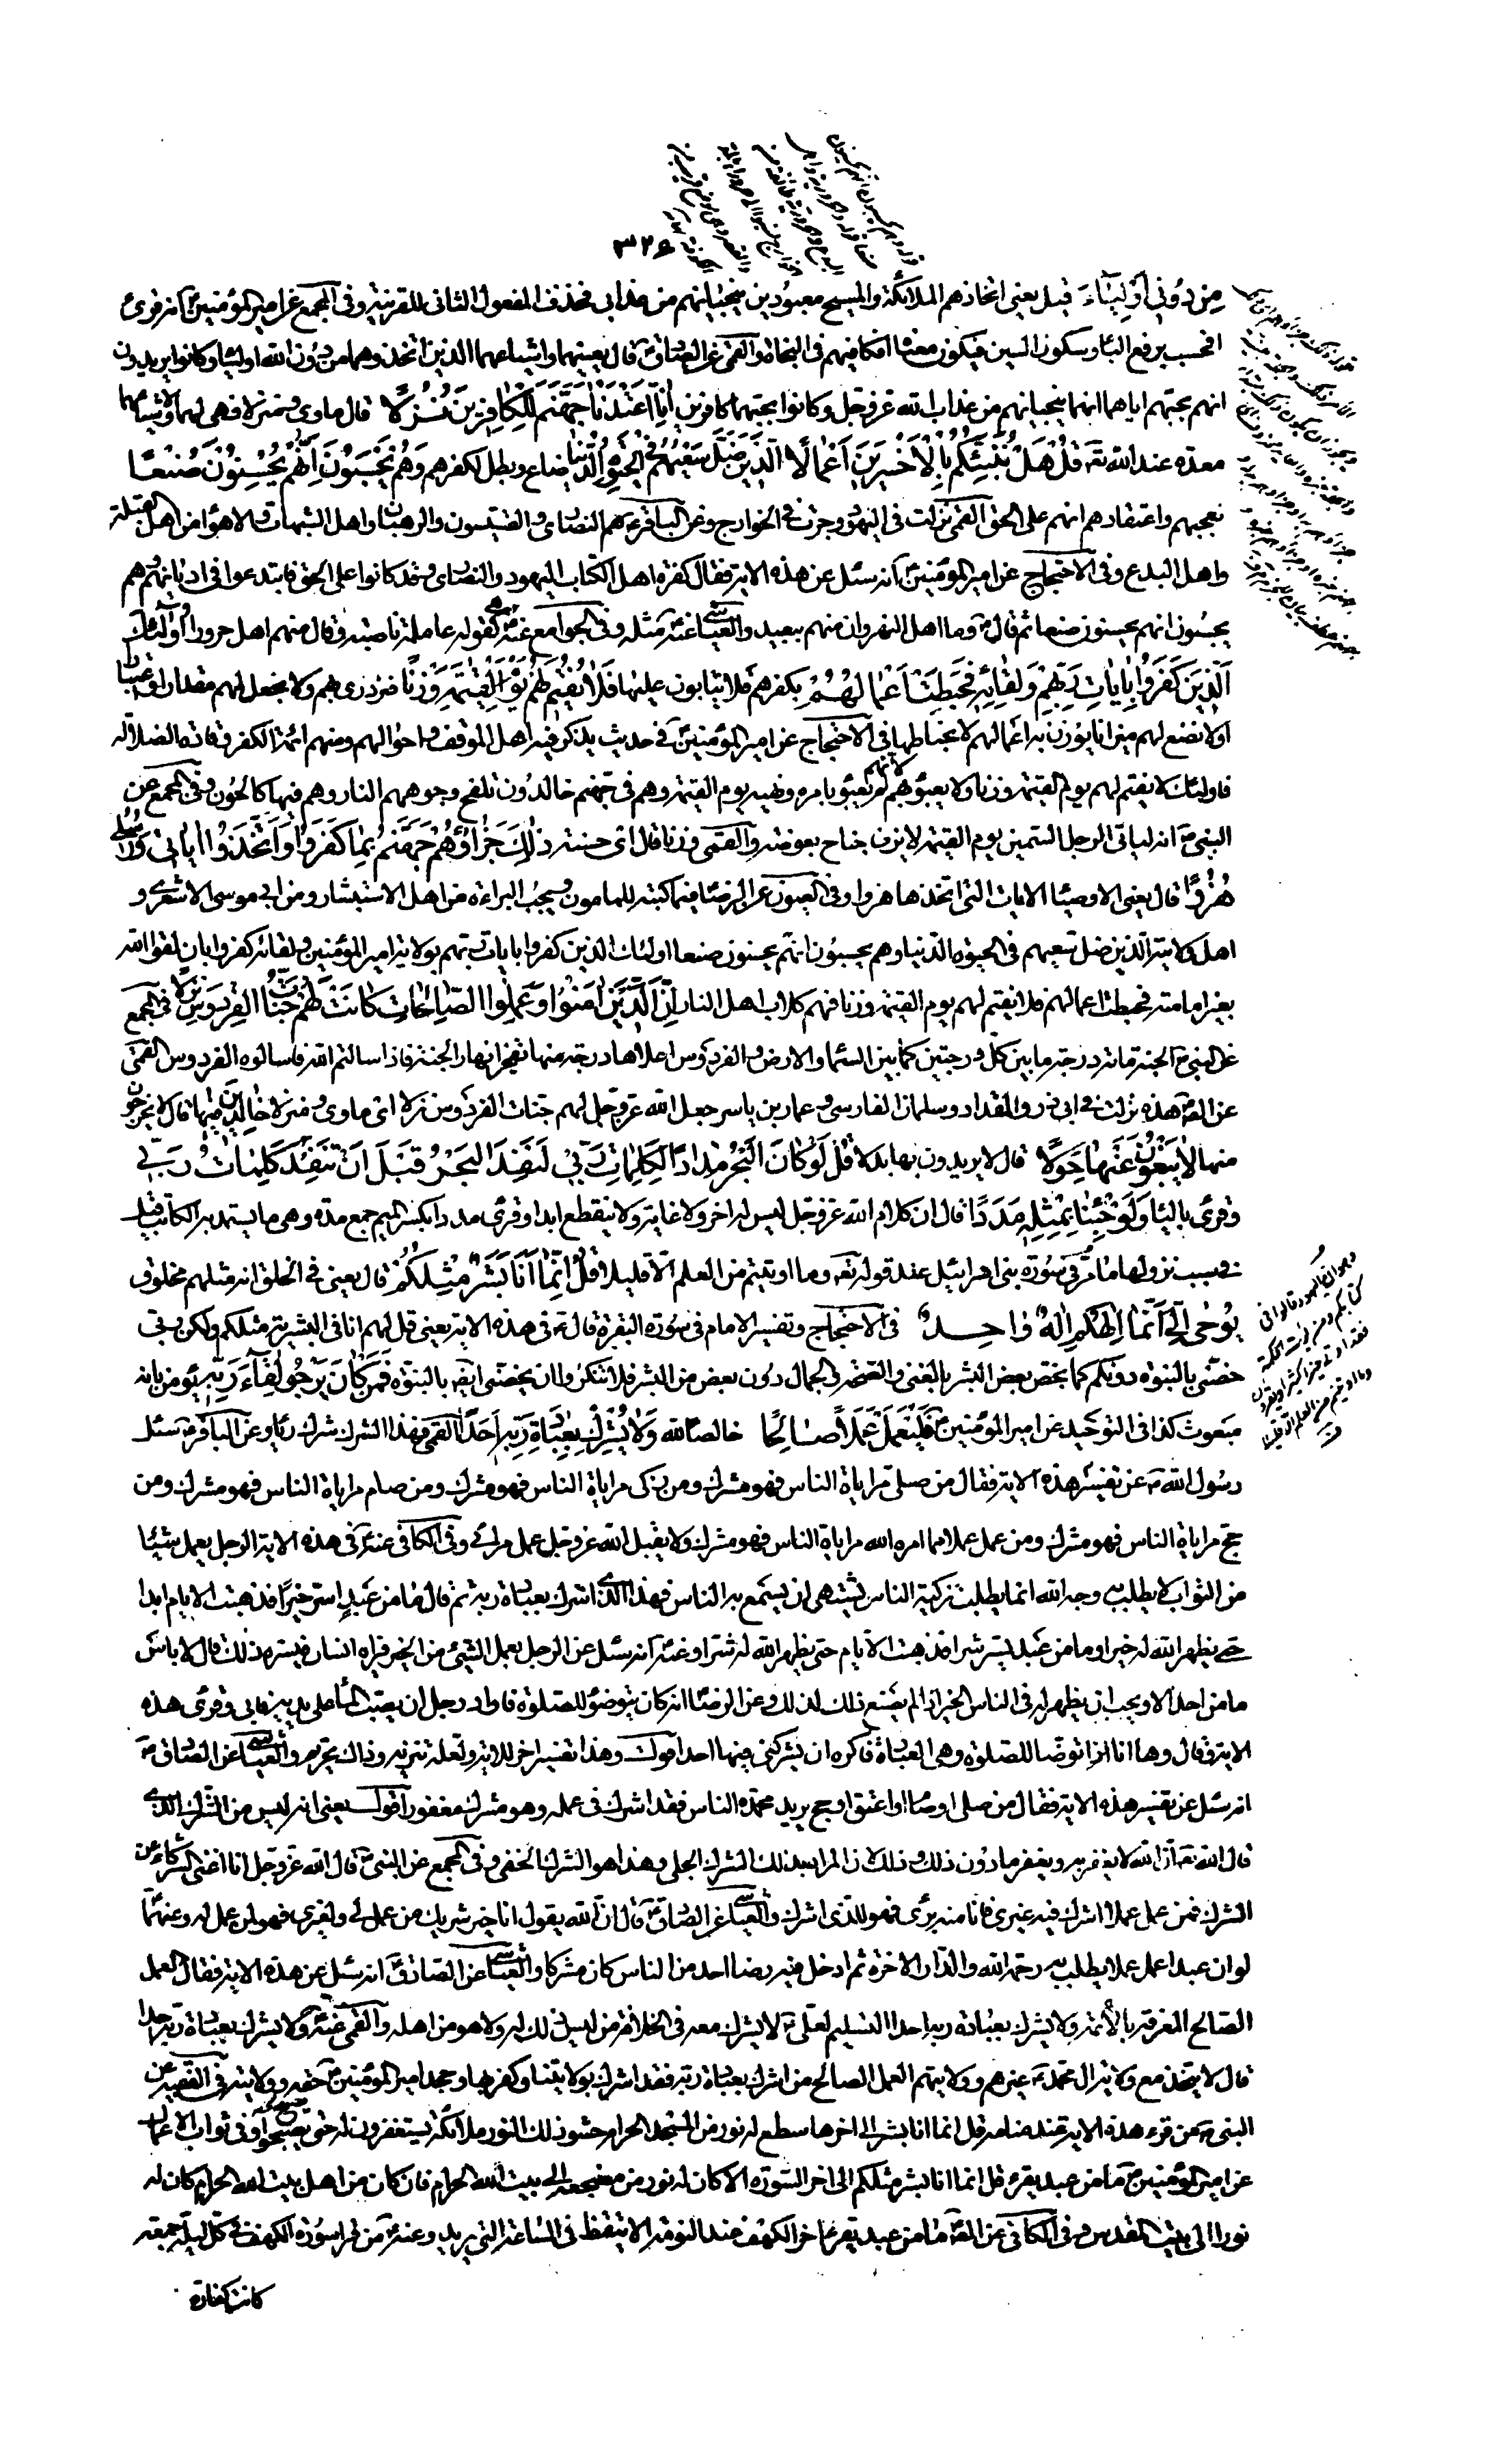 ٣٢٤
مِن دُونِي أَوْلِيَاءَ قيل يعني اتخاذهم الملائكة والمسيح معبودين ينجيانهم من عذابي فحذف المفعول الثاني للقرينة وفي المجمع عن امير المؤمنين ع انه قرئ
افحسب برفع الباء وسكون السين فيكون معناه افكافيهم في النجاة والقمي عن الصادق ع قال يعنيهما واشياعهما الذين اتخذوهما من دون الله اولياء وكانوا يريدون
انهم بحبهم اياهما انهما ينجيانهم من عذاب الله عز وجل وكانوا بحبهما كافرين إِنَّا أَعْتَدْنَا جَهَنَّمَ لِلْكَافِرِينَ نُزُلًا قال ماوى ومنزلا فهي لهما ولاشياعهما
معدة عند الله تعالى قُلْ هَلْ نُنَبِّئُكُم بِالْأَخْسَرِينَ أَعْمَالًا الَّذِينَ ضَلَّ سَعْيُهُمْ فِي الْحَيٰوةِ الدُّنْيَا ضاع وبطل لكفرهم وَهُمْ يَحْسَبُونَ أَنَّهُمْ يُحْسِنُونَ صُنْعًا
بعجبهم واعتقادهم انهم على الحق القمي نزلت في اليهود وجرت في الخوارج وعن الباقر ع هم النصارى والقسيسون والرهبان واهل الشبهات والاهواء من اهل القبلة
واهل البدع وفي الاحتجاج عن امير المؤمنين ع انه سئل عن هذه الاية فقال كفرة اهل الكتاب اليهود والنصارى وقد كانوا على الحق فابتدعوا في اديانهم وهم
يحسبون انهم يحسنون صنعا ثم قال ع وما اهل النهروان منهم ببعيد والعياشي عنه ع مثله وفي الجوامع عنه ع هي كقوله عاملة ناصبة وقال منهم اهل حروراء أُولٰئِكَ
الَّذِينَ كَفَرُوا بِآيَاتِ رَبِّهِمْ وَلِقَائِهِ فَحَبِطَتْ أَعْمَالُهُمْ بكفرهم فلا يثابون عليها فَلَا نُقِيمُ لَهُمْ يَوْمَ الْقِيٰمَةِ وَزْنًا فنزدري بهم ولا نجعل لهم مقدارا واعتبارا
او لا نضع لهم ميزانا يوزن به اعمالهم لانحباطها في الاحتجاج عن امير المؤمنين ع في حديث يذكر فيه اهل الموقف واحوالهم ومنهم ائمة الكفر وقادة الضلالة
فاولئك لا يقيم لهم يوم القيمة وزنا ولا يعبؤ بهم لانهم لم يعبؤا بامره ونهيه يوم القيمة وهم في جهنم خالدون تلفح وجوههم النار وهم فيها كالحون وفي المجمع عن
النبي ص انه لياتي الرجل السمين يوم القيمة لا يزن جناح بعوضة والقمي وزنا قال اي حسنة ذٰلِكَ جَزَاؤُهُمْ جَهَنَّمُ بِمَا كَفَرُوا وَاتَّخَذُوا آيَاتِي وَرُسُلِي
هُزُوًا قال يعني الاوصياء الايات التي اتخذها هزوا وفي العيون عن الرضا فيما كتبه للمامون ويجب البراءة من اهل الاستيثار ومن ابي موسى الاشعري و
اهل ولايته الذين ضل سعيهم في الحيوة الدنيا وهم يحسبون انهم يحسنون صنعا اولئك الذين كفروا بايات ربهم بولاية امير المؤمنين ع ولقائه كفروا بان لقوا الله
بغير امامته فحبطت اعمالهم فلا نقيم لهم يوم القيمة وزنا فهم كلاب اهل النار إِنَّ الَّذِينَ آمَنُوا وَعَمِلُوا الصَّالِحَاتِ كَانَتْ لَهُمْ جَنَّاتُ الْفِرْدَوْسِ نُزُلًا في المجمع
عن النبي ص الجنة مائة درجة ما بين كل درجتين كما بين السماء والارض والفردوس اعلاها درجة منها تفجر انهار الجنة فاذا سالتم الله فاسالوه الفردوس القمي
عن الصادق ع هذه نزلت في ابي ذر والمقداد وسلمان الفارسي وعمار بن ياسر جعل الله عز وجل لهم جنات الفردوس نزلا اي ماوى ومنزلا خَالِدِينَ فِيهَا قال لا يخرجون
منها لَا يَبْغُونَ عَنْهَا حِوَلًا قال لا يريدون بها بدلا قُل لَّوْ كَانَ الْبَحْرُ مِدَادًا لِكَلِمَاتِ رَبِّي لَنَفِدَ الْبَحْرُ قَبْلَ أَن تَنفَدَ كَلِمَاتُ رَبِّي
وقرئ بالياء وَلَوْ جِئْنَا بِمِثْلِهِ مَدَدًا قال ان كلام الله عز وجل ليس له اخر ولا غاية ولا ينقطع ابدا وقرئ مددا بكسر الميم جمع مدة وهي ما يستمد به الكاتب قيل
في سبب نزولها ما مر في سورة بني اسرائيل عند قوله تعالى وما اوتيتم من العلم الا قليلا قُلْ إِنَّمَا أَنَا بَشَرٌ مِثْلُكُمْ قال يعني في الخلق انه مثلهم مخلوق
يُوحَى إِلَيَّ أَنَّمَا إِلٰهُكُمْ إِلٰهٌ وَاحِدٌ في الاحتجاج وتفسير الامام في سورة البقرة قال ع في هذه الاية يعني قل لهم انا في البشرية مثلكم ولكن ربي
خصني بالنبوة دونكم كما يخص بعض البشر بالغنى والصحة والجمال دون بعض من البشر فلا تنكروا ان يخصني ايضا بالنبوة فَمَن كَانَ يَرْجُو لِقَاءَ رَبِّهِ يؤمن بانه
مبعوث كذا في التوحيد عن امير المؤمنين ع فَلْيَعْمَلْ عَمَلًا صَالِحًا خالصا لله وَلَا يُشْرِكْ بِعِبَادَةِ رَبِّهِ أَحَدًا القمي فهذا الشرك شرك رياء وعن الباقر ع سئل
رسول الله ص عن تفسير هذه الاية فقال من صلى مراياة الناس فهو مشرك ومن زكى مراياة الناس فهو مشرك ومن صام مراياة الناس فهو مشرك ومن
حج مراياة الناس فهو مشرك ومن عمل عملا مما امره الله مراياة الناس فهو مشرك ولا يقبل الله عز وجل عمل مرائي وفي الكافي عنه ع في هذه الاية الرجل يعمل شيئا
من الثواب لا يطلب به وجه الله انما يطلب تزكية الناس يشتهي ان يسمع به الناس فهذا الذي اشرك بعبادة ربه ثم قال ما من عبد اسر خيرا فذهبت الايام ابدا
حتى يظهر الله له خيرا وما من عبد يسر شرا فذهبت الايام حتى يظهر الله له شرا وعنه ع انه سئل عن الرجل يعمل الشيء من الخير فيراه انسان فيسره ذلك قال لا باس
ما من احد الا ويحب ان يظهر له في الناس الخير اذا لم يصنع ذلك لذلك وعن الرضا ع انه كان يتوضؤ للصلوة فاراد رجل ان يصب الماء على يديه فابى وقرئ هذه
الاية وقال وها انا اذا اتوضا للصلوة وهي العبادة فاكره ان يشركني فيها احد اقول وهذا تفسير اخر للاية ولعله تنزيه وذاك تحريم والعياشي عن الصادق ع
انه سئل عن تفسير هذه الاية فقال من صلى او صام او اعتق او حج يريد محمدة الناس فقد اشرك في عمله وهو مشرك مغفور اقول يعني انه ليس من الشرك الذي
قال الله تعالى ان الله لا يغفر ان يشرك به ويغفر ما دون ذلك وذلك لان المراد بذلك الشرك الجلي وهذا هو الشرك الخفي وفي المجمع عن النبي ص قال الله عز وجل انا اغنى الشركاء عن
الشرك فمن عمل عملا اشرك فيه غيري فانا منه بريء فهو للذي اشرك والعياشي عن الصادق ع قال ان الله يقول انا خير شريك من عمل لي ولغيري فهو لمن عمل له وعنهما ع
لو ان عبدا عمل عملا يطلب به رحمة الله والدار الاخرة ثم ادخل فيه رضا احد من الناس كان مشركا والعياشي عن الصادق ع انه سئل عن هذه الاية فقال العمل
الصالح المعرفة بالائمة ولا يشرك بعبادة ربه احدا التسليم لعلي ع لا يشرك معه في الخلافة من ليس ذلك له ولا هو من اهله والقمي عنه ع ولا يشرك بعبادة ربه احدا
قال لا يتخذ مع ولاية ال محمد ص غيرهم وولايتهم العمل الصالح من اشرك بعبادة ربه فقد اشرك بولايتنا وكفر بها وجحد امير المؤمنين ع حقه وولايته في الفقيه عن
النبي ص من قرء هذه الاية عند منامه قل انما انا بشر الى اخرها سطع له نور من المسجد الحرام حشو ذلك النور ملائكة يستغفرون له حتى يصبح وفي ثواب الاعمال
عن امير المؤمنين ع ما من عبد يقرء قل انما انا بشر مثلكم الى اخر السورة الا كان له نور من مضجعه الى بيت الله الحرام فان كان من اهل بيت الله الحرام كان له
نورا الى بيت المقدس وفي الكافي عن الصادق ع ما من عبد يقرء اخر الكهف عند النوم الا تيقظ في الساعة التي يريد وعنه ع من قرا سورة الكهف في كل ليلة جمعة
كانت كفارة